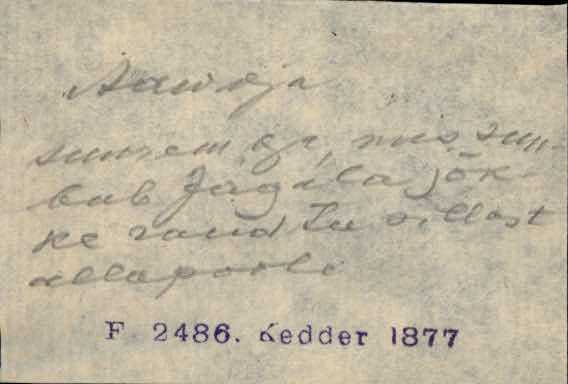 Aawoja
suurem oja, mis suu-
bub Jägala jõk-
ke raudtee sillast
allapoole
F 2486. Kedder 1877